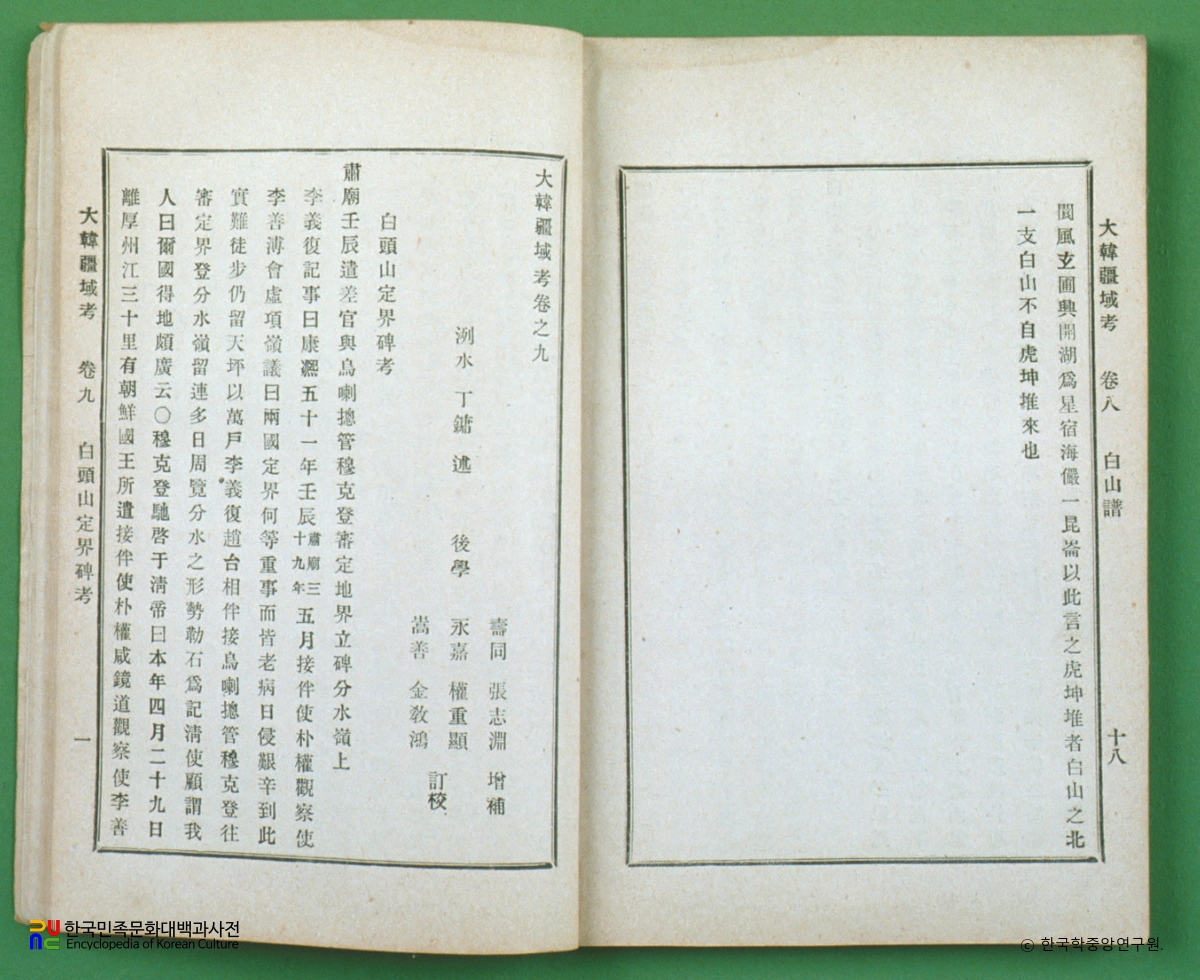 大韓疆域考 卷八 白山譜 十八
閬風玄圃興開湖爲星宿海儼一昆崙以此言之虎坤堆者白山之北
一支白山不自虎坤堆來也
大韓疆域考卷之九
壽同 張志淵 增補
洌水 丁鏞 述 後學 永嘉 權重顯
訂校
嵩善 金敎鴻
白頭山定界碑考
肅廟壬辰遣差官與烏喇摠管穆克登審定地界立碑分水嶺上
李義復記事曰康熙五十一年壬辰肅廟三十九年五月接伴使朴權觀察使
李善溥會虛項嶺議曰兩國定界何等重事而皆老病日侵艱辛到此
實難徒步仍留天坪以萬戶李義復趙台相伴接烏喇摠管穆克登往
審定界登分水嶺留連多日周覽分水之形勢勒石爲記淸使顧謂我
人曰爾國得地頗廣云〇穆克登馳啓于淸帝曰本年四月二十九日
離厚州江三十里有朝鮮國王所遣接伴使朴權咸鏡道觀察使李善
大韓疆域考 卷九 白頭山定界碑考 一
한국민족문화대백과사전
Encyclopedia of Korean Culture
© 한국학중앙연구원.